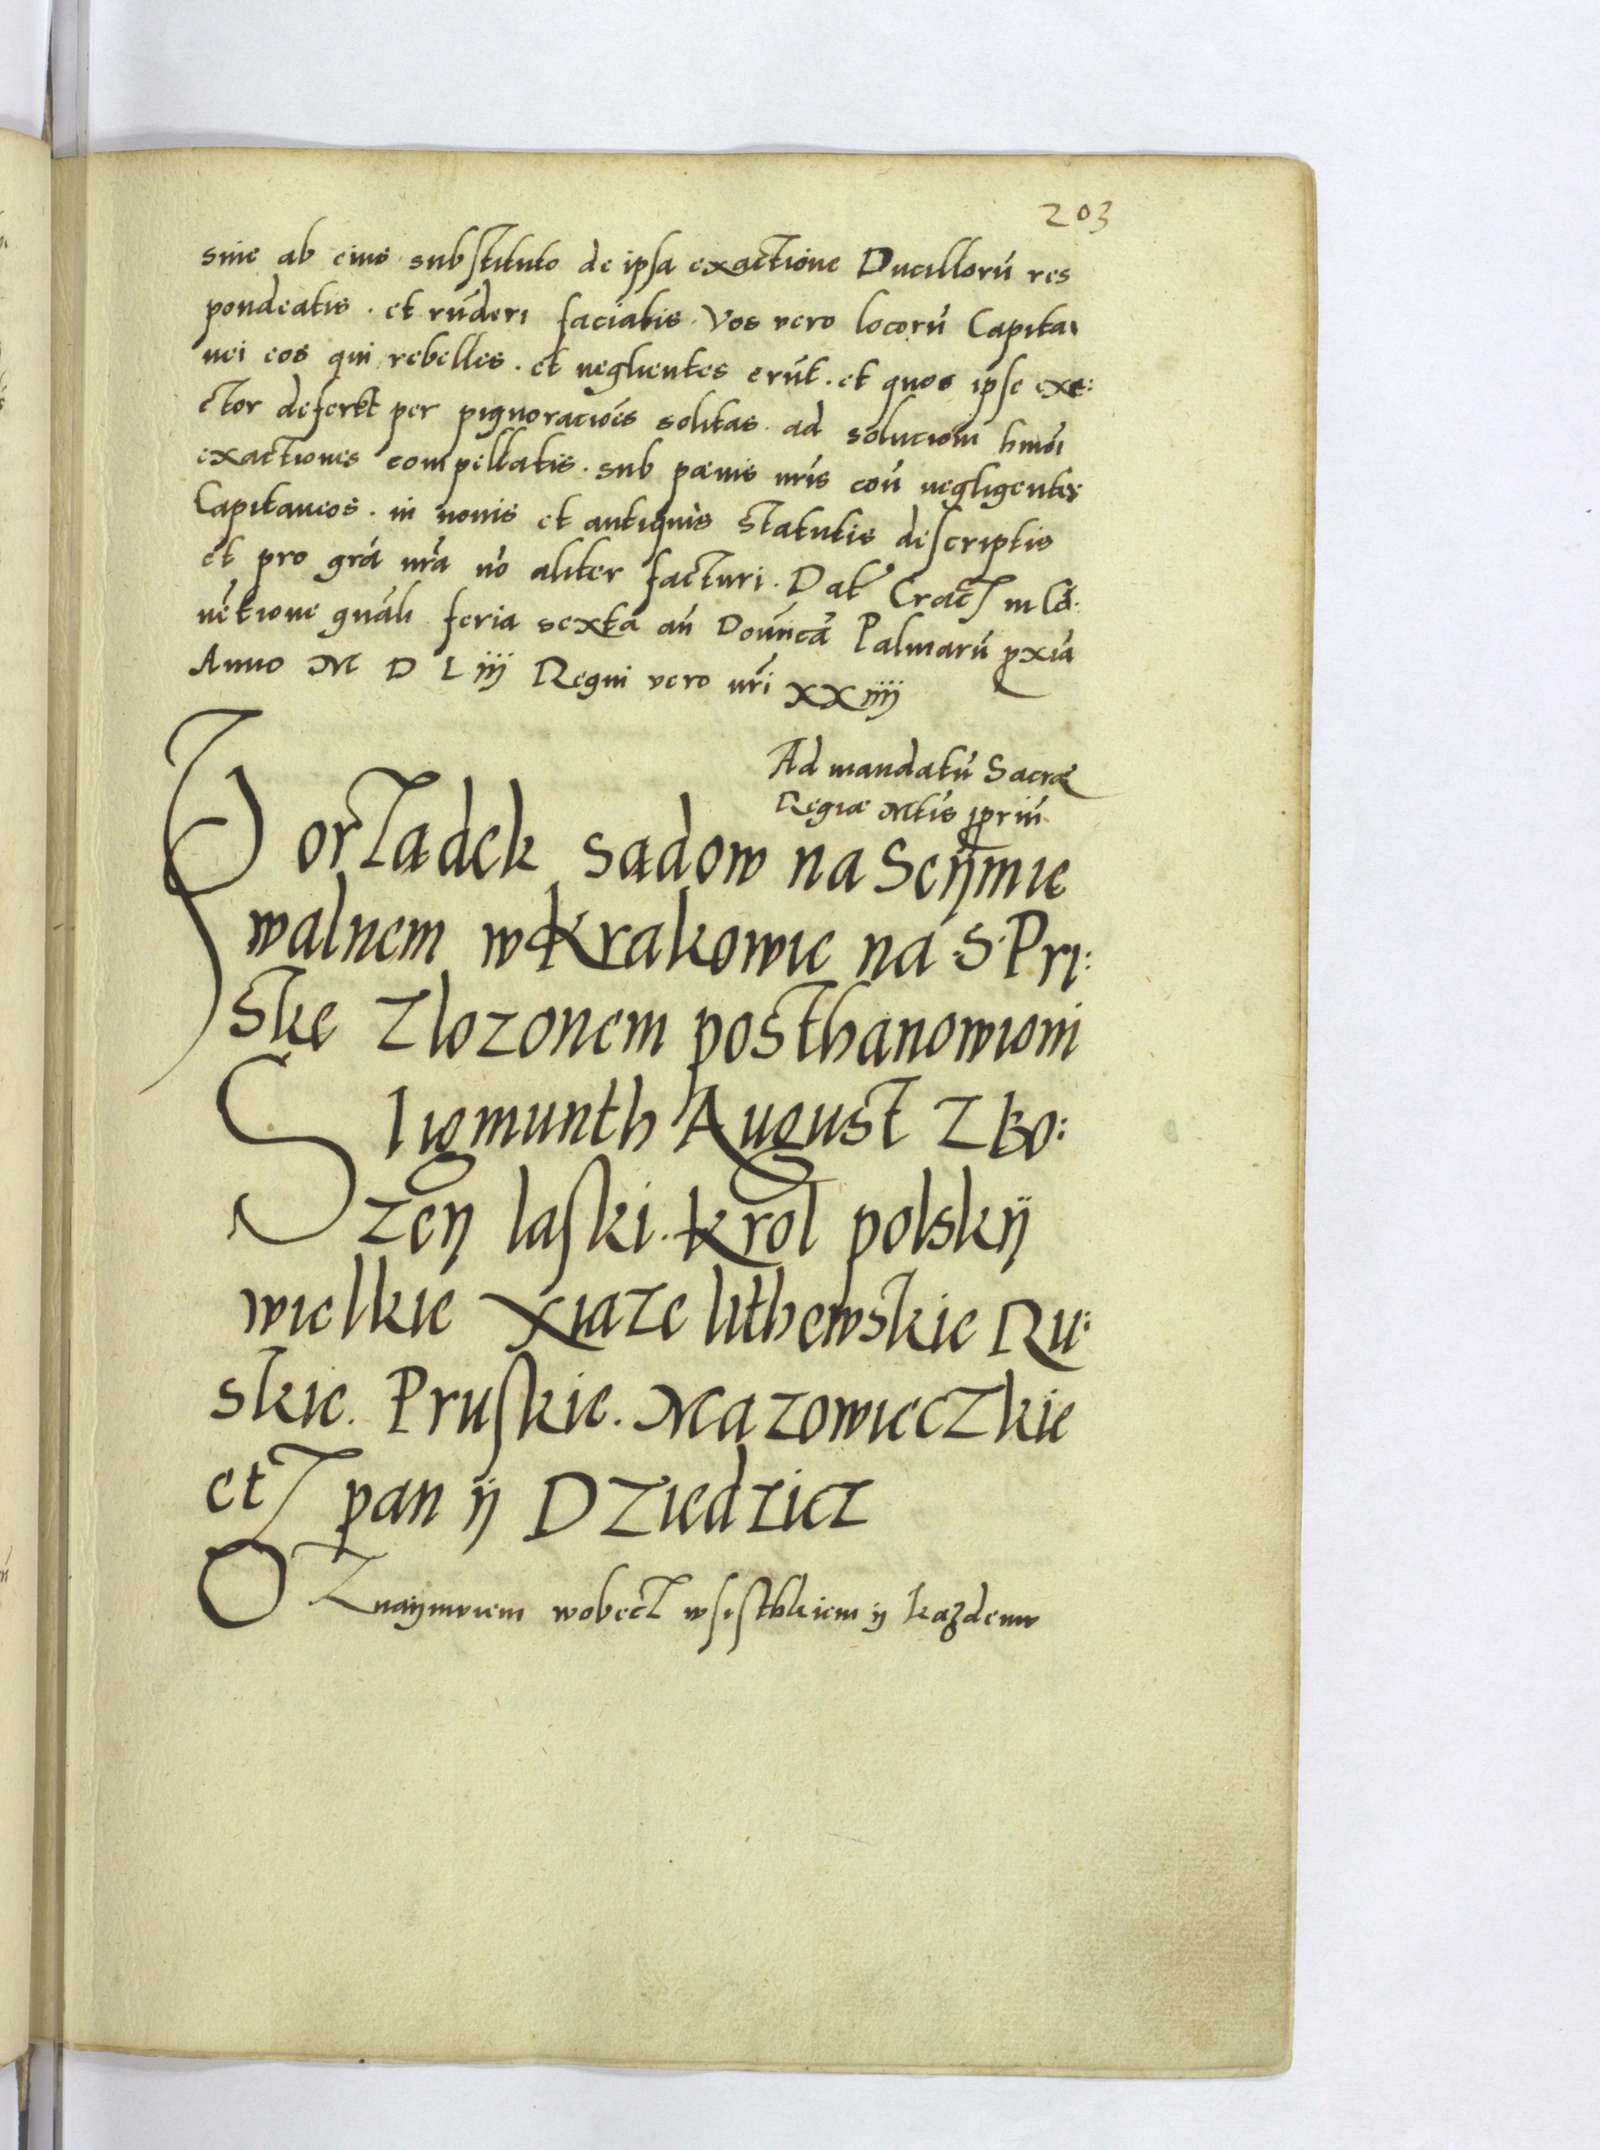 203
sive ab eius substituto de ipsa exactione Ducillorū res
pondeatis . et rūderi faciatis . Vos vero locorū Capita
nei eos qui rebelles . et neglientes erūt . et quos ipse exa:
ctor defertt per pignoracioēs solitas . ad solucioni hmōi
exactiones compellatis . sub pænis nr̄is coū negligentes
Capitaneos . in nouis et antiquis statutis descriptis
et pro grā nr̄a nō aliter facturi . Dat̄ Cracz in Cō:
nētione gnāli feria sexta an̄ Dōnicā Palmarū pxiā
Anno M D L iij Regni vero nr̄i XXiiij
Ad mandatū Sacræ
Regiæ Mtis ppriū
Porządek sądow na Seÿmie
walnem w Krakowie na S. Pri:
skę złozonem posthanowioni
Sigmunth August z Bo:
zeÿ laski . Krol polskÿ
wielkie Xiąze lithewskie Ru:
skie . Pruskie . Mazowieczkie
etz pan ÿ Dziedzicz
Oznaÿmuiem wobecz wsistbkiem ÿ kazdemu